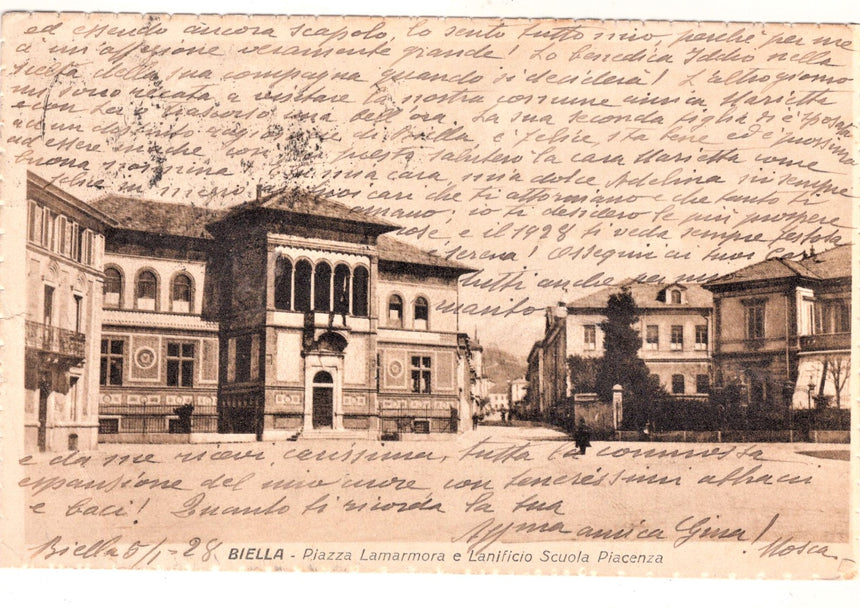 ed essendo ancora scapolo, lo sento tutto mio, perchè per me
à un'affezione veramente grande! Lo benedica Iddio nella
scelta della sua compagna quando si deciderà! L'altrogiorno
mi sono recata a visitare la nostra comune amica Marietta
e con Lei trascorso una bell'ora. La sua seconda figlia si è sposata
ad un distinto di Biella è felice, sta bene ed è prossima
ad essere madre con questa saluterò la cara Marietta come
buona cara mia dolce Adelina sii sempre
felice cari che ti attorniano e che tanto ti
amano; io ti desidero le più prospere
cose e il 1928 ti veda sempre
serena! Ossequi ai tuoi cari
tutti anche per mio
marito
e da me ricevi carissima, tutta la commossa
espansione del mio cuore con tenerissimi abbracci
e baci! Quanto ti ricorda la tua
Aff.ma amica Gina!
Biella 5/1-28 BIELLA - Piazza Lamarmora e Lanificio Scuola Piacenza
Mosca